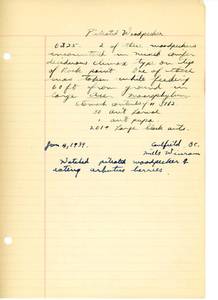 Pileated Woodpecker
0825 2 of these woodpeckers
encountered in mixed conifer
deciduous climax type on top
of Rock point One of these
was taken while feeding
60 ft from ground in
large Acer macrophyllum
Stomach contents # 1983
30 ant larvae
1 ant pupa
20 large black ants.
Jan 4, 1939. Caulfield B.C.
Watched pileated woodpecker
eating arbutus berries.